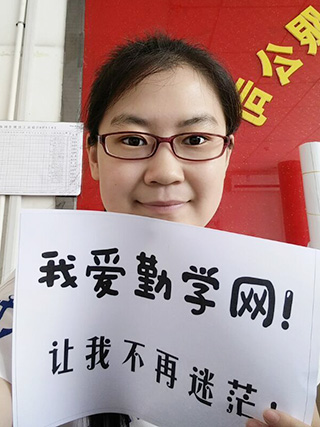 公
我爱勤学网!
让我不再迷茫!